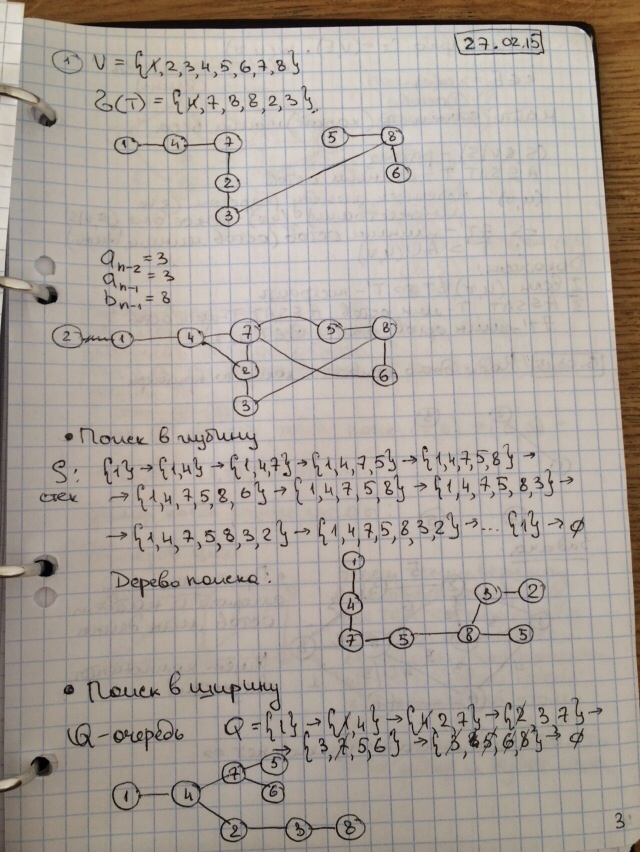 27.02.15
1 V = {1,2,3,4,5,6,7,8}
Z(T) = {4,7,8,8,2,3}
1 4 7 5 8
2 6
3
a n-2 = 3
a n-1 = 3
b n-1 = 8
2 1 4 7 5 8
2 6
3
• Поиск в глубину
S: {1} → {1,4} → {1,4,7} → {1,4,7,5} → {1,4,7,5,8} →
стек → {1,4,7,5,8,6} → {1,4,7,5,8} → {1,4,7,5,8,3} →
→ {1,4,7,5,8,3,2} → {1,4,7,5,8,3,2} → ... {1} → ∅
Дерево поиска:
1
4 3 2
7 5 8 5
• Поиск в ширину
Q-очередь Q = {1} → {1,4} → {4,2,7} → {2,3,7} →
→ {3,7,5,6} → {3,6,5,6,8} → ∅
7 5
1 4 6
2 3 8
3